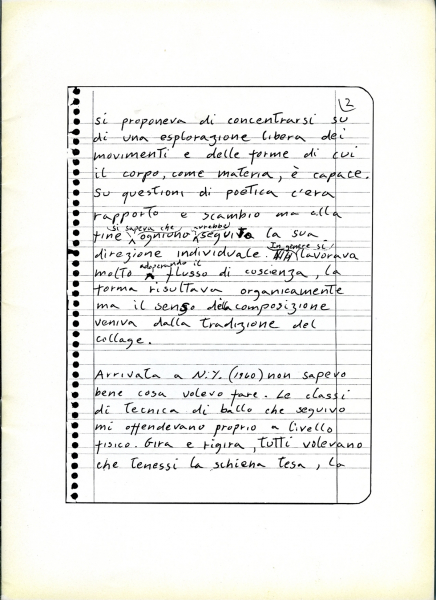 2
si proponeva di concentrarsi su
di una esplorazione libera dei
movimenti e delle forme di cui
il corpo, come materia, è capace.
Su questioni di poetica c'era
rapporto e scambio ma alla
fine si sapeva che ogniuno avrebbe seguito la sua
direzione individuale. In genere si lavorava
molto adoperando il flusso di coscienza, la
forma risultava organicamente
ma il senso della composizione
veniva dalla tradizione del
collage.
Arrivata a N.Y. (1960) non sapevo
bene cosa volevo fare. Le classi
di tecnica di ballo che seguivo
mi offendevano proprio a livello
fisico. Gira e rigira, tutti volevano
che tenessi la schiena tesa, la